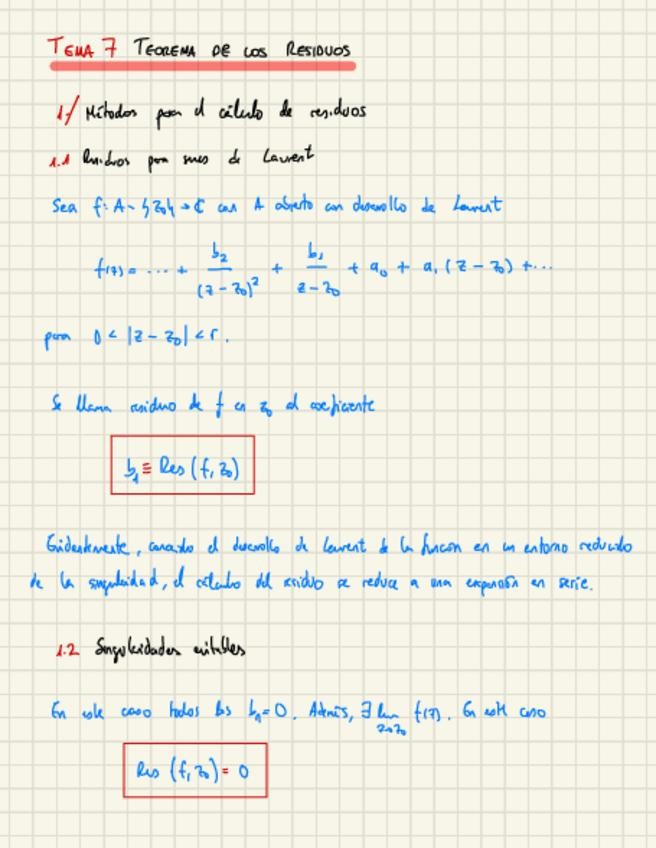 TEMA 7 TEOREMA DE LOS RESIDUOS
1/ Métodos para el cálculo de residuos
1.1 Residuos por series de Laurent
Sea f: A ~ {z₀} → ℂ con A abierto con desarrollo de Laurent
f(z) = ... + b₂/(z - z₀)² + b₁/(z - z₀) + a₀ + a₁(z - z₀) + ...
para 0 < |z - z₀| < r.
Se llama residuo de f en z₀ al coeficiente
b₁ ≡ Res(f, z₀)
Evidentemente, conocido el desarrollo de Laurent de la función en un entorno reducido
de la singularidad, el cálculo del residuo se reduce a una expansión en serie.
1.2 Singularidades evitables
En este caso todos los bₙ = 0. Además, ∃ lim z→z₀ f(z). En este caso
Res (f, z₀) = 0